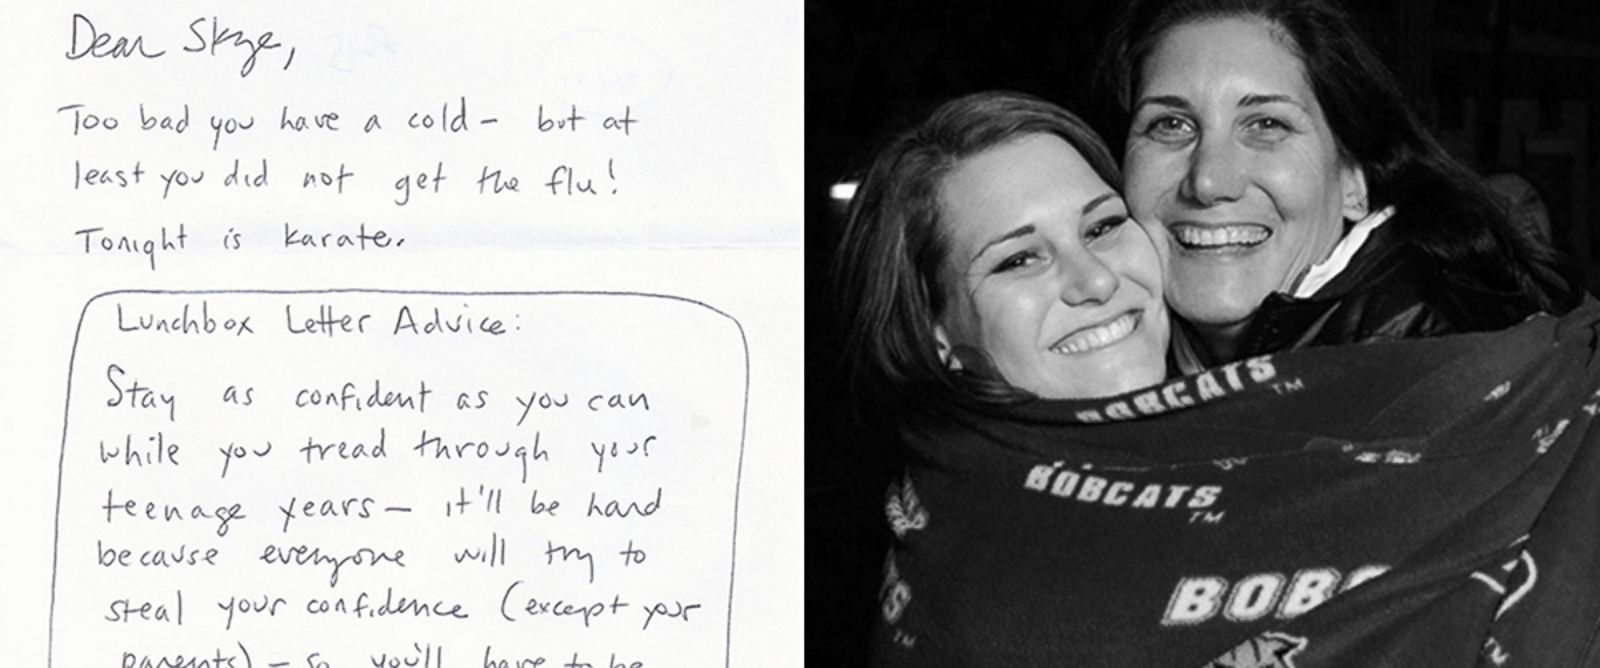 Dear Skye,
Too bad you have a cold – but at
least you did not get the flu!
Tonight is karate.
Lunchbox Letter Advice:
Stay as confident as you can
while you tread through your
teenage years – it'll be hard
because everyone will try to
steal your confidence (except your
parents) – so you'll have to be
BOBCATS TM
BOBCATS TM
BOBC